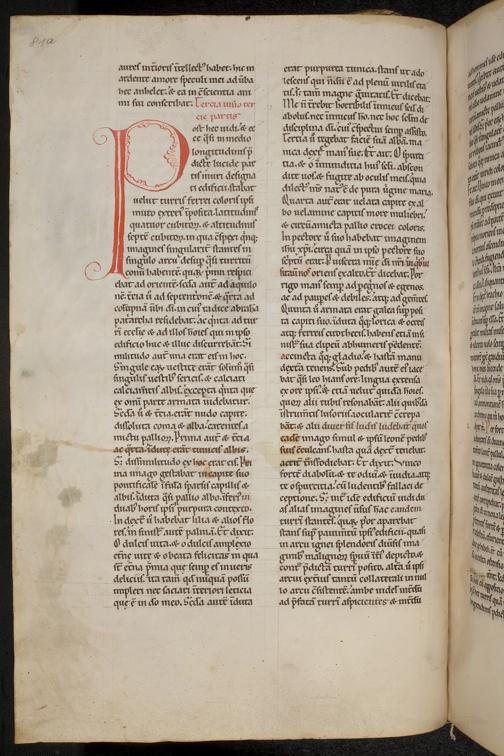 81a
aures int̄ioris ītellect͛ habet. hic in
ardente amore speculi mei ad ūba
hec anhelet. & ea in c̄scientia ani
mi sui conscribat. Tercia uisio ter
cie partis
Post hec uidi. & ec
ce q̄si in medio
longitudinis p̄
dicte lucide par
tis muri designa
ti edificii. stabat
uelut turris ferrei coloris ipsi
muro exteri͛ īposita. latitudinis
quatuor cubitoꝝ. & altitudinis
septē cubitoꝝ. in qua c̄spexi qnq;
imagines singularit͛ stantes in
singulo arcu
cata habentē. quaꝝ p̄ma respici
ebat ad orientē. scđa autē ad aquilo
nē. t̄cia ū ad septentrionē. & q̄rta ad
colūpnā ūbi dī. in cui͛ radice abrahā
patarcha residebat. & q̄nta ad tur
rī ecclīe & ad illos hoīes qui in ipso
edificio huc & illuc discurrebāt. Si
militudo autē una erat eis in hoc.
Singule eaꝝ uestite erāt
singulis uestib͛ sericis. & calciati
calciamtīs albis. excepta q̄nta que
ex omī parte armata uidebatur.
Scđa ū & t̄cia erāt nudo capite.
dissoluta coma & alba. carentes a
mictu pallioꝝ. Prima autē & t̄cia
ac q̄rta. īdute erāt tunicis albis.
Si dissimilitudo ex hoc erat eis. Pri
ma imago gestabat in capite suo
pontificalē īfulā sparsis capillis &
albis. īduta q̄si pallio albo.
duab͛ horis ipsi͛ purpura contexto.
In dext̄ ū habebat lilia & alios flo
res. in sinist̄ autē palmā. Et dixit.
O dulcis uita. & o dulcis amplexio
et̄ne uite & o beata felicitas in qua
sт̄ et̄na p̄mia. que semp es in ueris
deliciis. ita tam̄ qd nūquā possū
impleri nec saciari int̄iori leticia
que ē in dō meo. Scđa autē īduta
erat purpurea tunica. stans ut ado
lescens qui nōdū ē ad plenū uirilis eta
tis. s̄ tam̄ magne g̊uitatis. Et dicebat.
Me n̄ t̄rebit horribilis inimicus scil; di
abolus. nec inimic͛ ho. nec hoc sclm̄. de
disciplina dī. cui͛ c̄spectui semp̄ assisto.
Tertia ū tegebat facie suā alba ma
nica dext̄ man͛ sue. Et ait. O spurci
tia. & o īmundicia hui͛ scl̄i. abscon
dite uos & fugite ab oculis meis. quia
dilect͛ m̄s nat͛ ē de pura ūgine maria.
Quarta autē erat uelata capite ex al
bo uelamine capitis more muliebri.
& circūamicta pallio crocei coloris.
In pectore ū suo habebat imaginem
ihu xp̄i. circa quā in ipso pectore suo
septū erat. P uiscera
oriens exalto. Et dicebat. Por
rigo man͛ semp̄ ad pegnos & egenos.
ac ad paupes & debiles. atq; ad gem̄tes.
Quinta ū armata erat galea sup̄ posi
ta capiti suo. īduta q̄q; lorica & ocreis
atq; ferreis cyrothecis. habens etiā sinis
t͛ sua clipeū abhum̄o pendentē.
accincta q̄q; gladio. & hasta manu
dext̄a tenens. Sub pedib͛ autē ei͛ iace
bat q̄si leo hians ore. lingua extensa
ex ore ipsi͛. & etiā uelut quidā hoīes.
quoꝝ alii tubis resonabāt. alii quibusdā
istrumtīs lusoriis. ioculariт̄ crepa
bāt. & alii diuersis ludis ludebāt. quos
eadē imago simul & ipsū leonē pedib͛
suis c̄culcans. hasta quā dext̄ tenebat.
acrit͛ t̄nsfodiebat. Et dixit. Vinco
fortē diabolū. & te odiū & inuidia. atq;
te o spurcitia. cū ludentib͛ fallaci de
ceptione. Sc͛ int͛ idē edificiū uidi du
as alias imagines īsistē hac eandem
turrī stantes. quaꝝ una apparebat
stans sup pauimtū ipsi͛ edificii. quasi
in arcu ignei splendoris diūsis ima
ginib͛ malignoꝝ spirituū int̄ depicto. &
cont̄ p̄dictā turrī posito. alta ū ipsi
arcui ext̄ius tantū collaterali in nul
lo arcu c̄sistente. ambe uidelt͛
ad p̄fatā turrī aspicientes. &